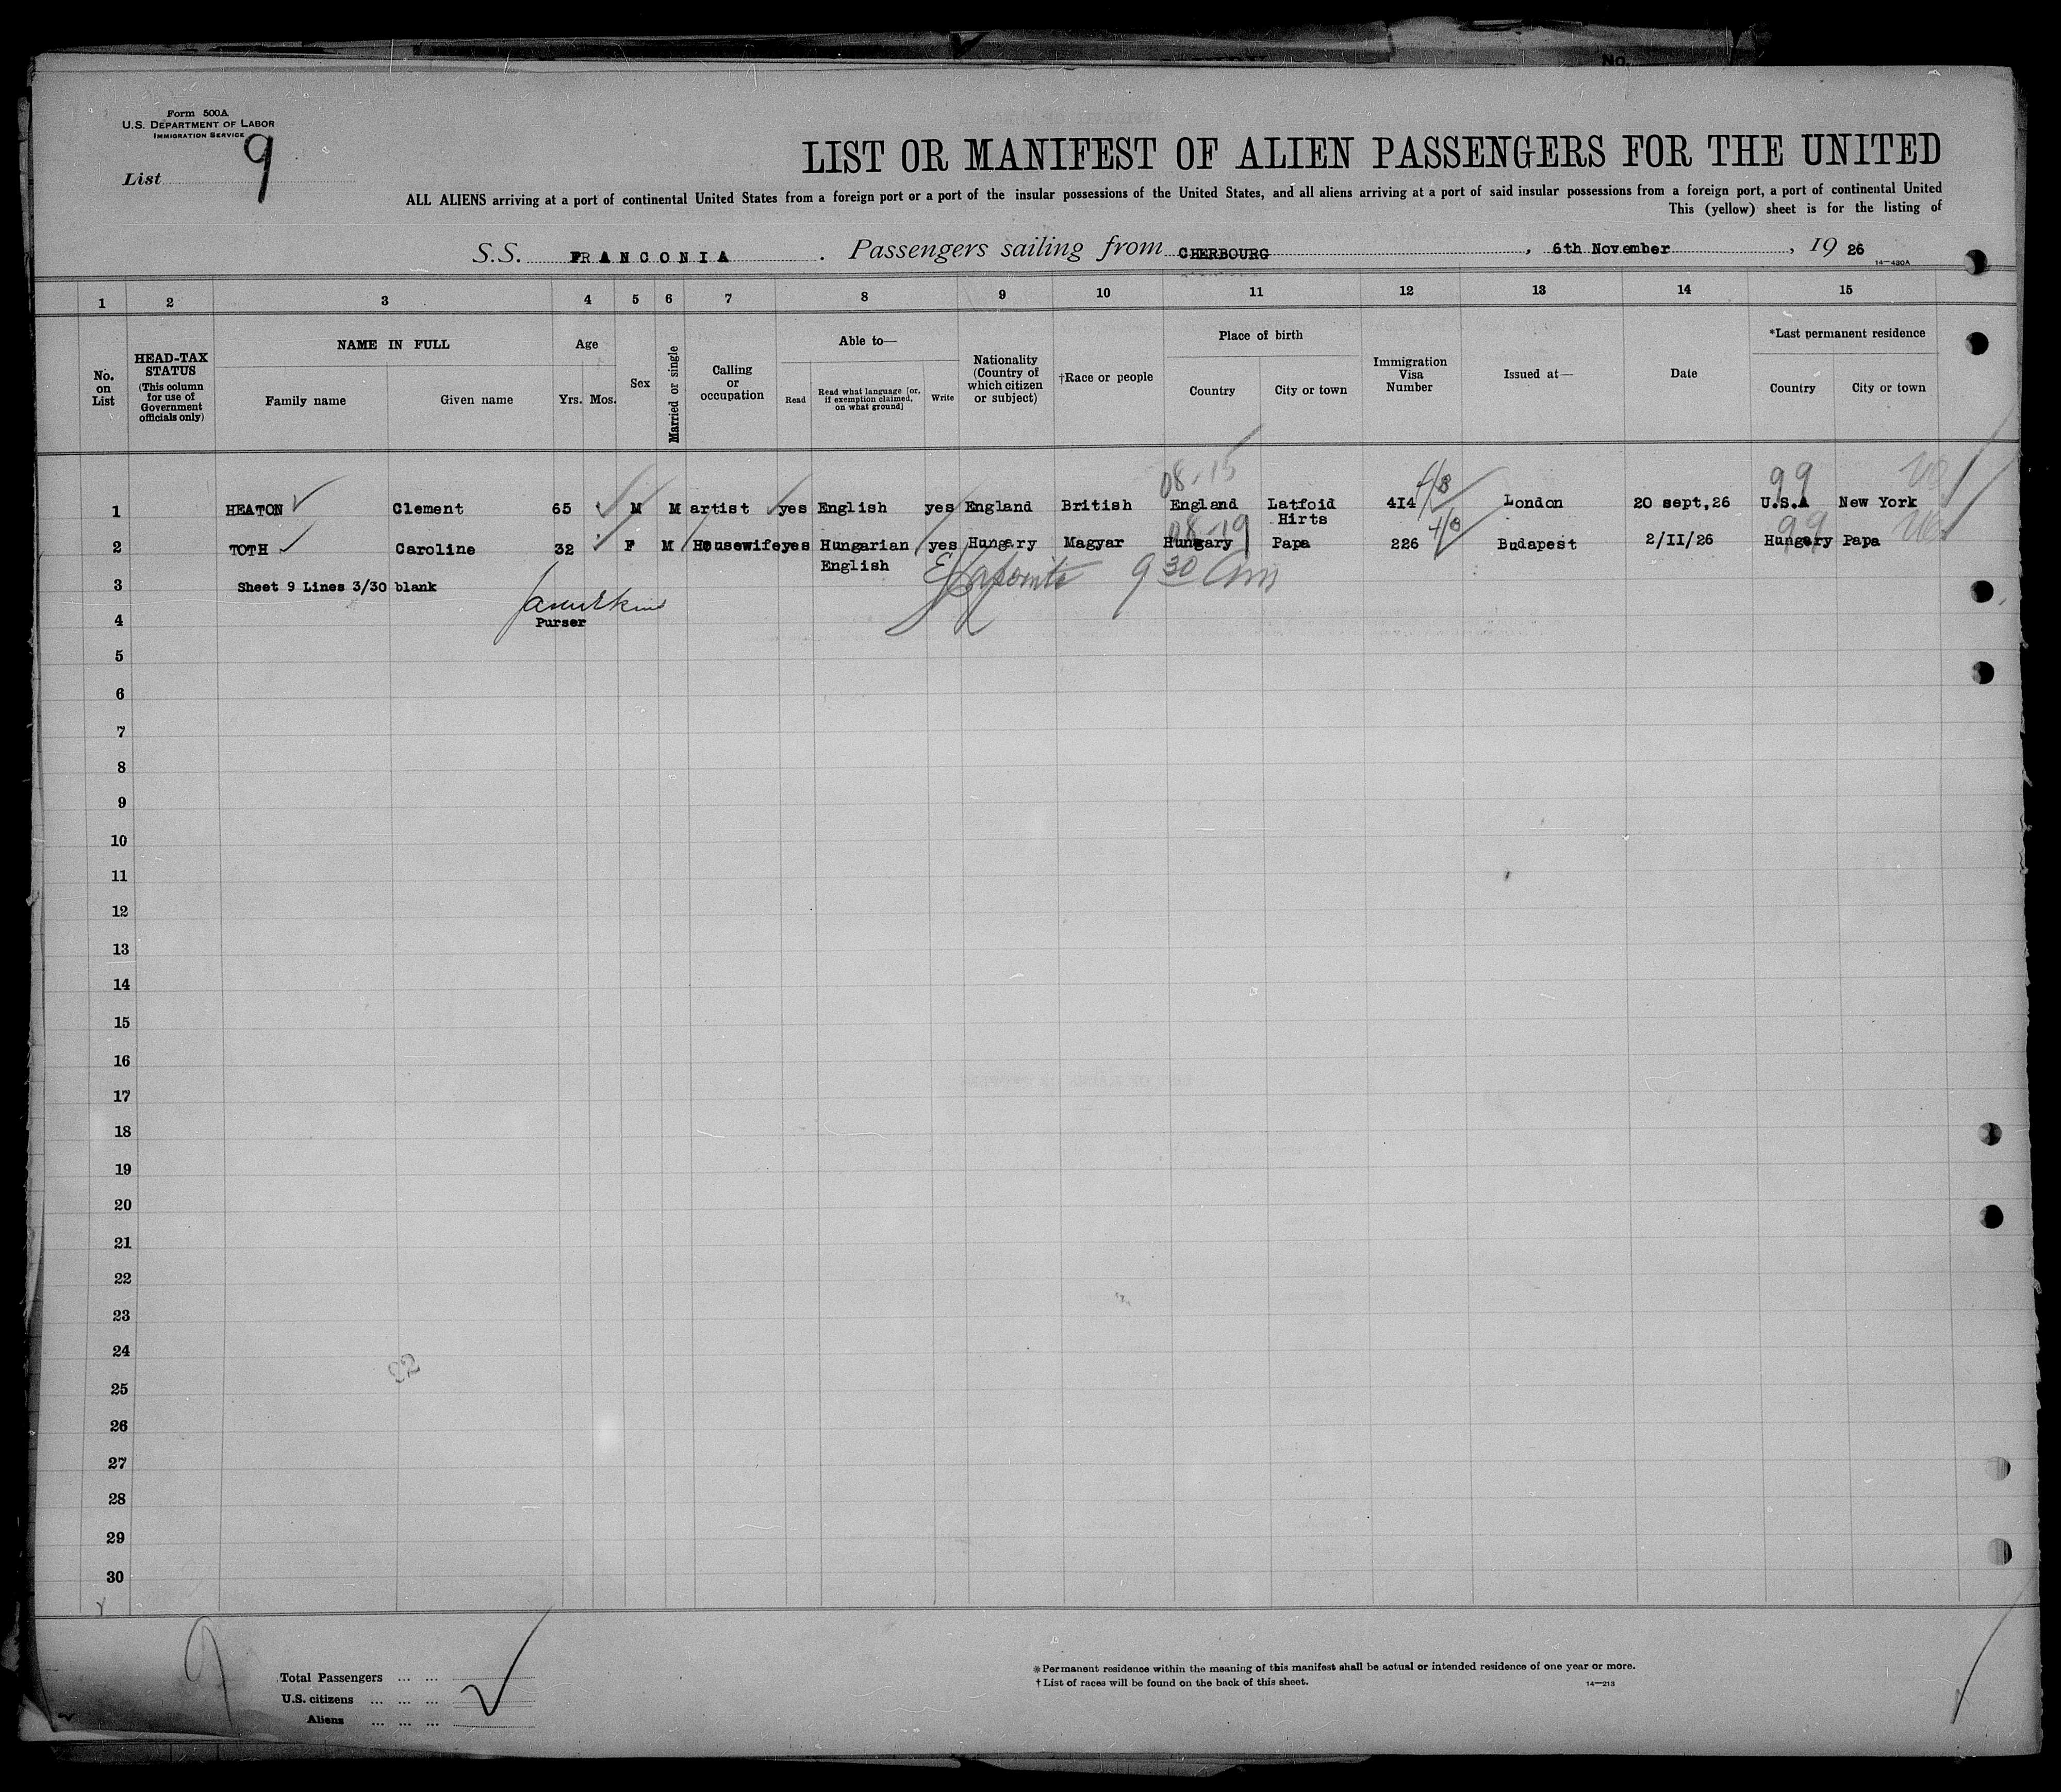 Form 500A
U.S. DEPARTMENT OF LABOR
IMMIGRATION SERVICE
List 9
LIST OR MANIFEST OF ALIEN PASSENGERS FOR THE UNITED
ALL ALIENS arriving at a port of continental United States from a foreign port or a port of the insular possessions of the United States, and all aliens arriving at a port of said insular possessions from a foreign port, a port of continental United
This (yellow) sheet is for the listing of
S.S. FRANCONIA. Passengers sailing from CHERBOURG, 6th November, 19 26
14—430A
1 2 3 4 5 6 7 8 9 10 11 12 13 14 15
No. on List
HEAD-TAX STATUS
(This column for use of Government officials only)
NAME IN FULL
Family name Given name
Age
Yrs. Mos.
Sex
Married or single
Calling or occupation
Able to—
Read Read what language [or, if exemption claimed, on what ground] Write
Nationality (Country of which citizen or subject)
†Race or people
Place of birth
Country City or town
Immigration Visa Number
Issued at—
Date
*Last permanent residence
Country City or town
08-15 4/B 99
1 HEATON Clement 65 M M artist yes English yes England British England Latfoid Hirts 414 London 20 sept,26 U.S.A New York
08-19 4/B 99
2 TOTH Caroline 32 F M Housewife yes Hungarian English yes Hungary Magyar Hungary Papa 226 Budapest 2/II/26 Hungery Papa
3 Sheet 9 Lines 3/30 blank
9 30 am
4 Purser
5
6
7
8
9
10
11
12
13
14
15
16
17
18
19
20
21
22
23
24
25
26
27
28
29
30
9
Total Passengers ... ...
U.S. citizens ... ... ...
Aliens ... ... ...
*Permanent residence within the meaning of this manifest shall be actual or intended residence of one year or more.
†List of races will be found on the back of this sheet.
14—213